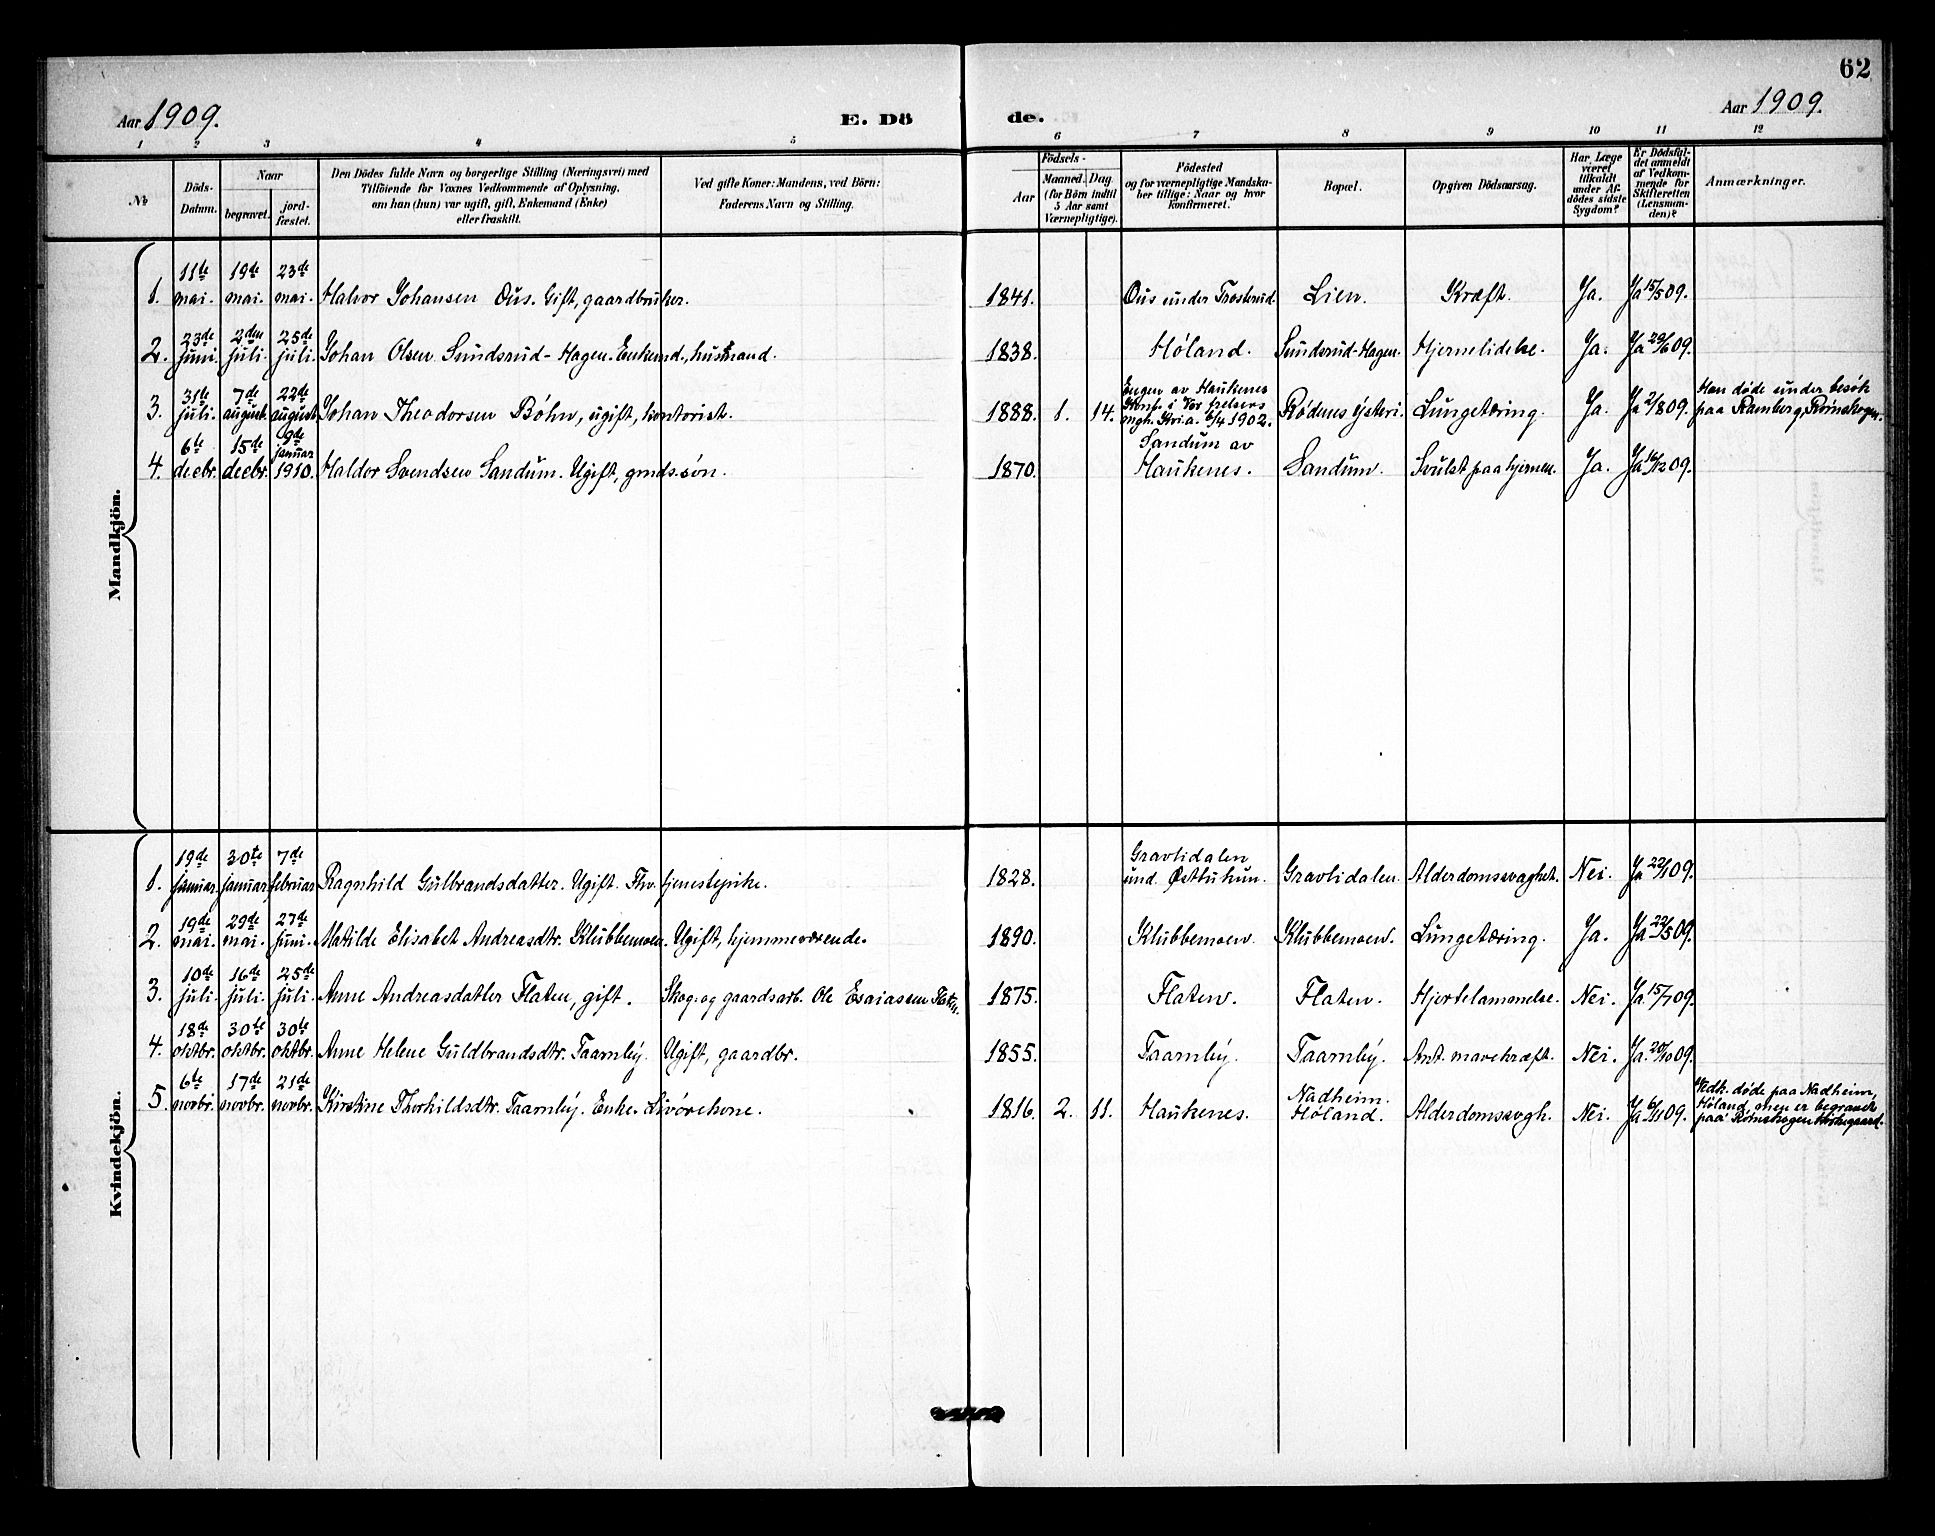 62
Aar 1909.
E. Dö
de.
Aar 1909.
1 2 3 4 5 6 7 8 9 10 11 12
№
Döds-
Datum.
Naar
begravet.
jord-
fæstet.
Den Dödes fulde Navn og borgerlige Stilling (Næringsvei) med
Tilföiende for Voxnes Vedkommende af Oplysning,
om han (hun) var ugift, gift, Enkemand (Enke)
eller fraskilt.
Ved gifte Koner: Mandens, ved Börn:
Faderens Navn og Stilling.
Födsels-
Aar
Maaned.
Dag
(for Börn indtil
5 Aar samt
Værnepligtige).
Födested
og for værnepligtige Mandska-
ber tillige: Naar og hvor
konfirmeret.
Bopæl.
Opgiven Dödsaarsag.
Har Læge
været
tilkaldt
under Af-
dödes sidste
Sygdom?
Er Dödsfal-
det anmeldt
af Vedkom-
mende for
Skifteretten
(Lensman-
den)?
Anmærkninger.
Mandkjön.
1. 11te mai. 19de mai. 23de mai. Halvor Johansen Ous. Gift, gaardbruker. 1841. Ous under Trosterud. Lien. Kræft. Ja. Ja 15/5 09.
2. 23de juni. 2den juli. 25de juli. Johan Olsen Sundsrud-Hagen. Enkemd., husmand. 1838. Høland. Sundsrud-Hagen. Hjernelidelse. Ja. Ja 29/6 09.
3. 31te juli. 7de august. 22de august. Johan Theodorsen Böhn, ugift, kontorist. 1888. 1. 14. Engen av Haukenes
Konf. i Vor Frelsers
mgh. Kri.a. 6/4 1902. Rødenes ysteri. Lungetæring. Ja. Ja 2/8 09. Han døde under besøk
paa Ramberg, Rømskogen.
4. 6te decbr. 15de decbr. 9de januar 1910. Haldor Svendsen Sandum. Ugift, grmds.søn. 1870. Sandum av
Haukenes. Sandum. Svulst paa hjernen. Ja. Ja 16/12 09.
Kvindekjön.
1. 19de januar. 30te januar. 7de februar. Ragnhild Gulbrandsdatter. Ugift. Fhv. tjenestepike. 1828. Gravlidalen
und. Østkukun. Gravlidalen. Alderdomssvaghet. Nei. Ja 22/1 09.
2. 19de mai. 29de mai. 27de juni. Matilde Elisabet Andreasdtr. Klubbemoen. Ugift, hjemmeværende. 1890. Klubbemoen. Klubbemoen. Lungetæring. Ja. Ja 22/5 09.
3. 10de juli. 16de juli. 25de juli. Anne Andreasdatter Flaten, gift. Skog- og gaardsarb. Ole Esaiassen Flaten. 1875. Flaten. Flaten. Hjertelammelse. Nei. Ja 15/7 09.
4. 18de oktbr. 30te oktbr. 30te oktbr. Anne Helene Guldbrandsdtr. Taarnby. Ugift, gaardbr. 1855. Taarnby. Taarnby. Ant. mavekræft. Nei. Ja. 20/10 09.
5. 6te novbr. 17de novbr. 21de novbr. Kirstine Thorkildsdtr. Taarnby. Enke. Livörekone. 1816. 2. 11. Haukenes. Nadheim.
Høland. Alderdomssvgh. Nei. Ja 6/11 09. Vedk. døde paa Nadheim,
Høland, men er begravet
paa Rømskogen kirkegaard.